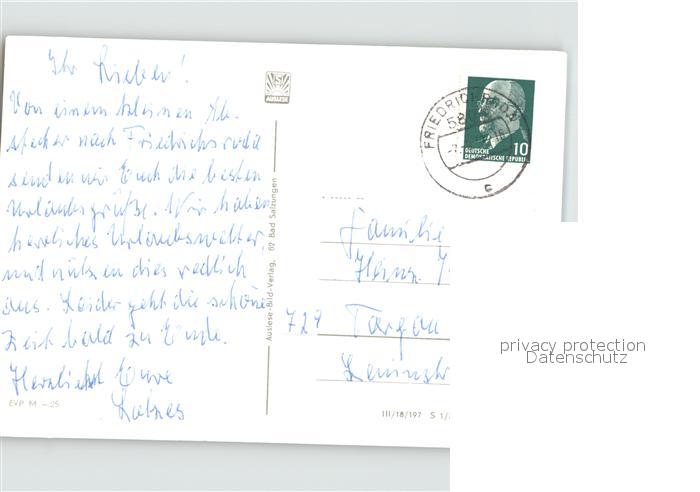 Ihr Lieben!
Von einem kleinen Ab-
stecher nach Friedrichsroda
senden wir Euch die besten
Urlaubsgrüße. Wir haben
herrliches Urlaubswetter,
und nützen dies redlich
aus. Leider geht die schöne
Zeit bald zu Ende.
Herzlichst Eure
EVP M -.25
AUSLESE
Auslese-Bild-Verlag, 62 Bad Salzungen
FRIEDRICHRODA
580
c
10
DEUTSCHE
DEMOKRATISCHE REPUBLIK
Familie
Heinz
729 Torgau
Leninstr
III/18/197 S 1/
privacy protection
Datenschutz